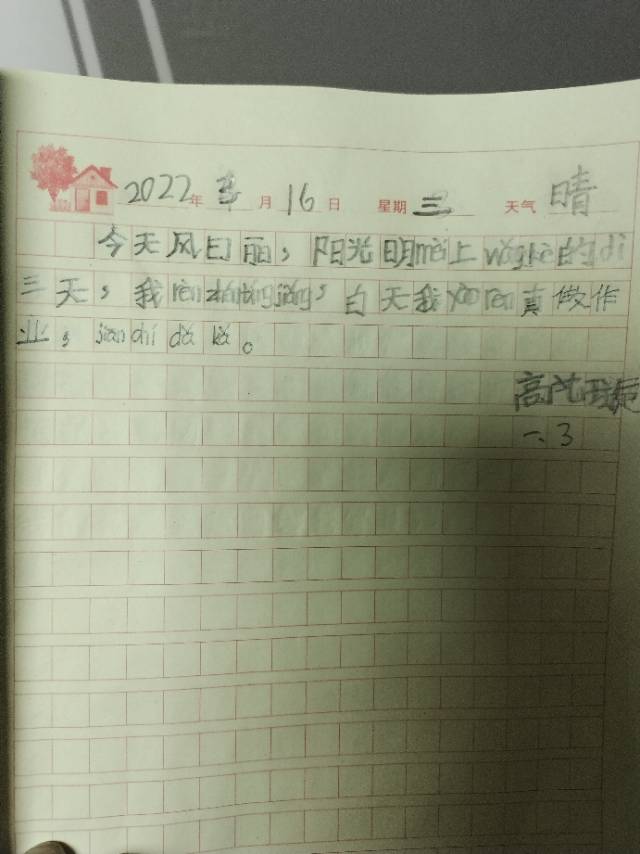 2022年 月16日 星期三 天气 晴
今天风日丽，阳光明mèi上wǎngkè的dì
三天，我rèn zhēn tīng jiǎng，白天我yào rèn真做作
业，jiān chí dǎ kǎ。
高
一、3